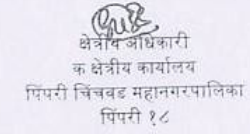 क्षेत्रीय अधिकारी
क क्षेत्रीय कार्यालय
पिंपरी चिंचवड महानगरपालिका
पिंपरी १८